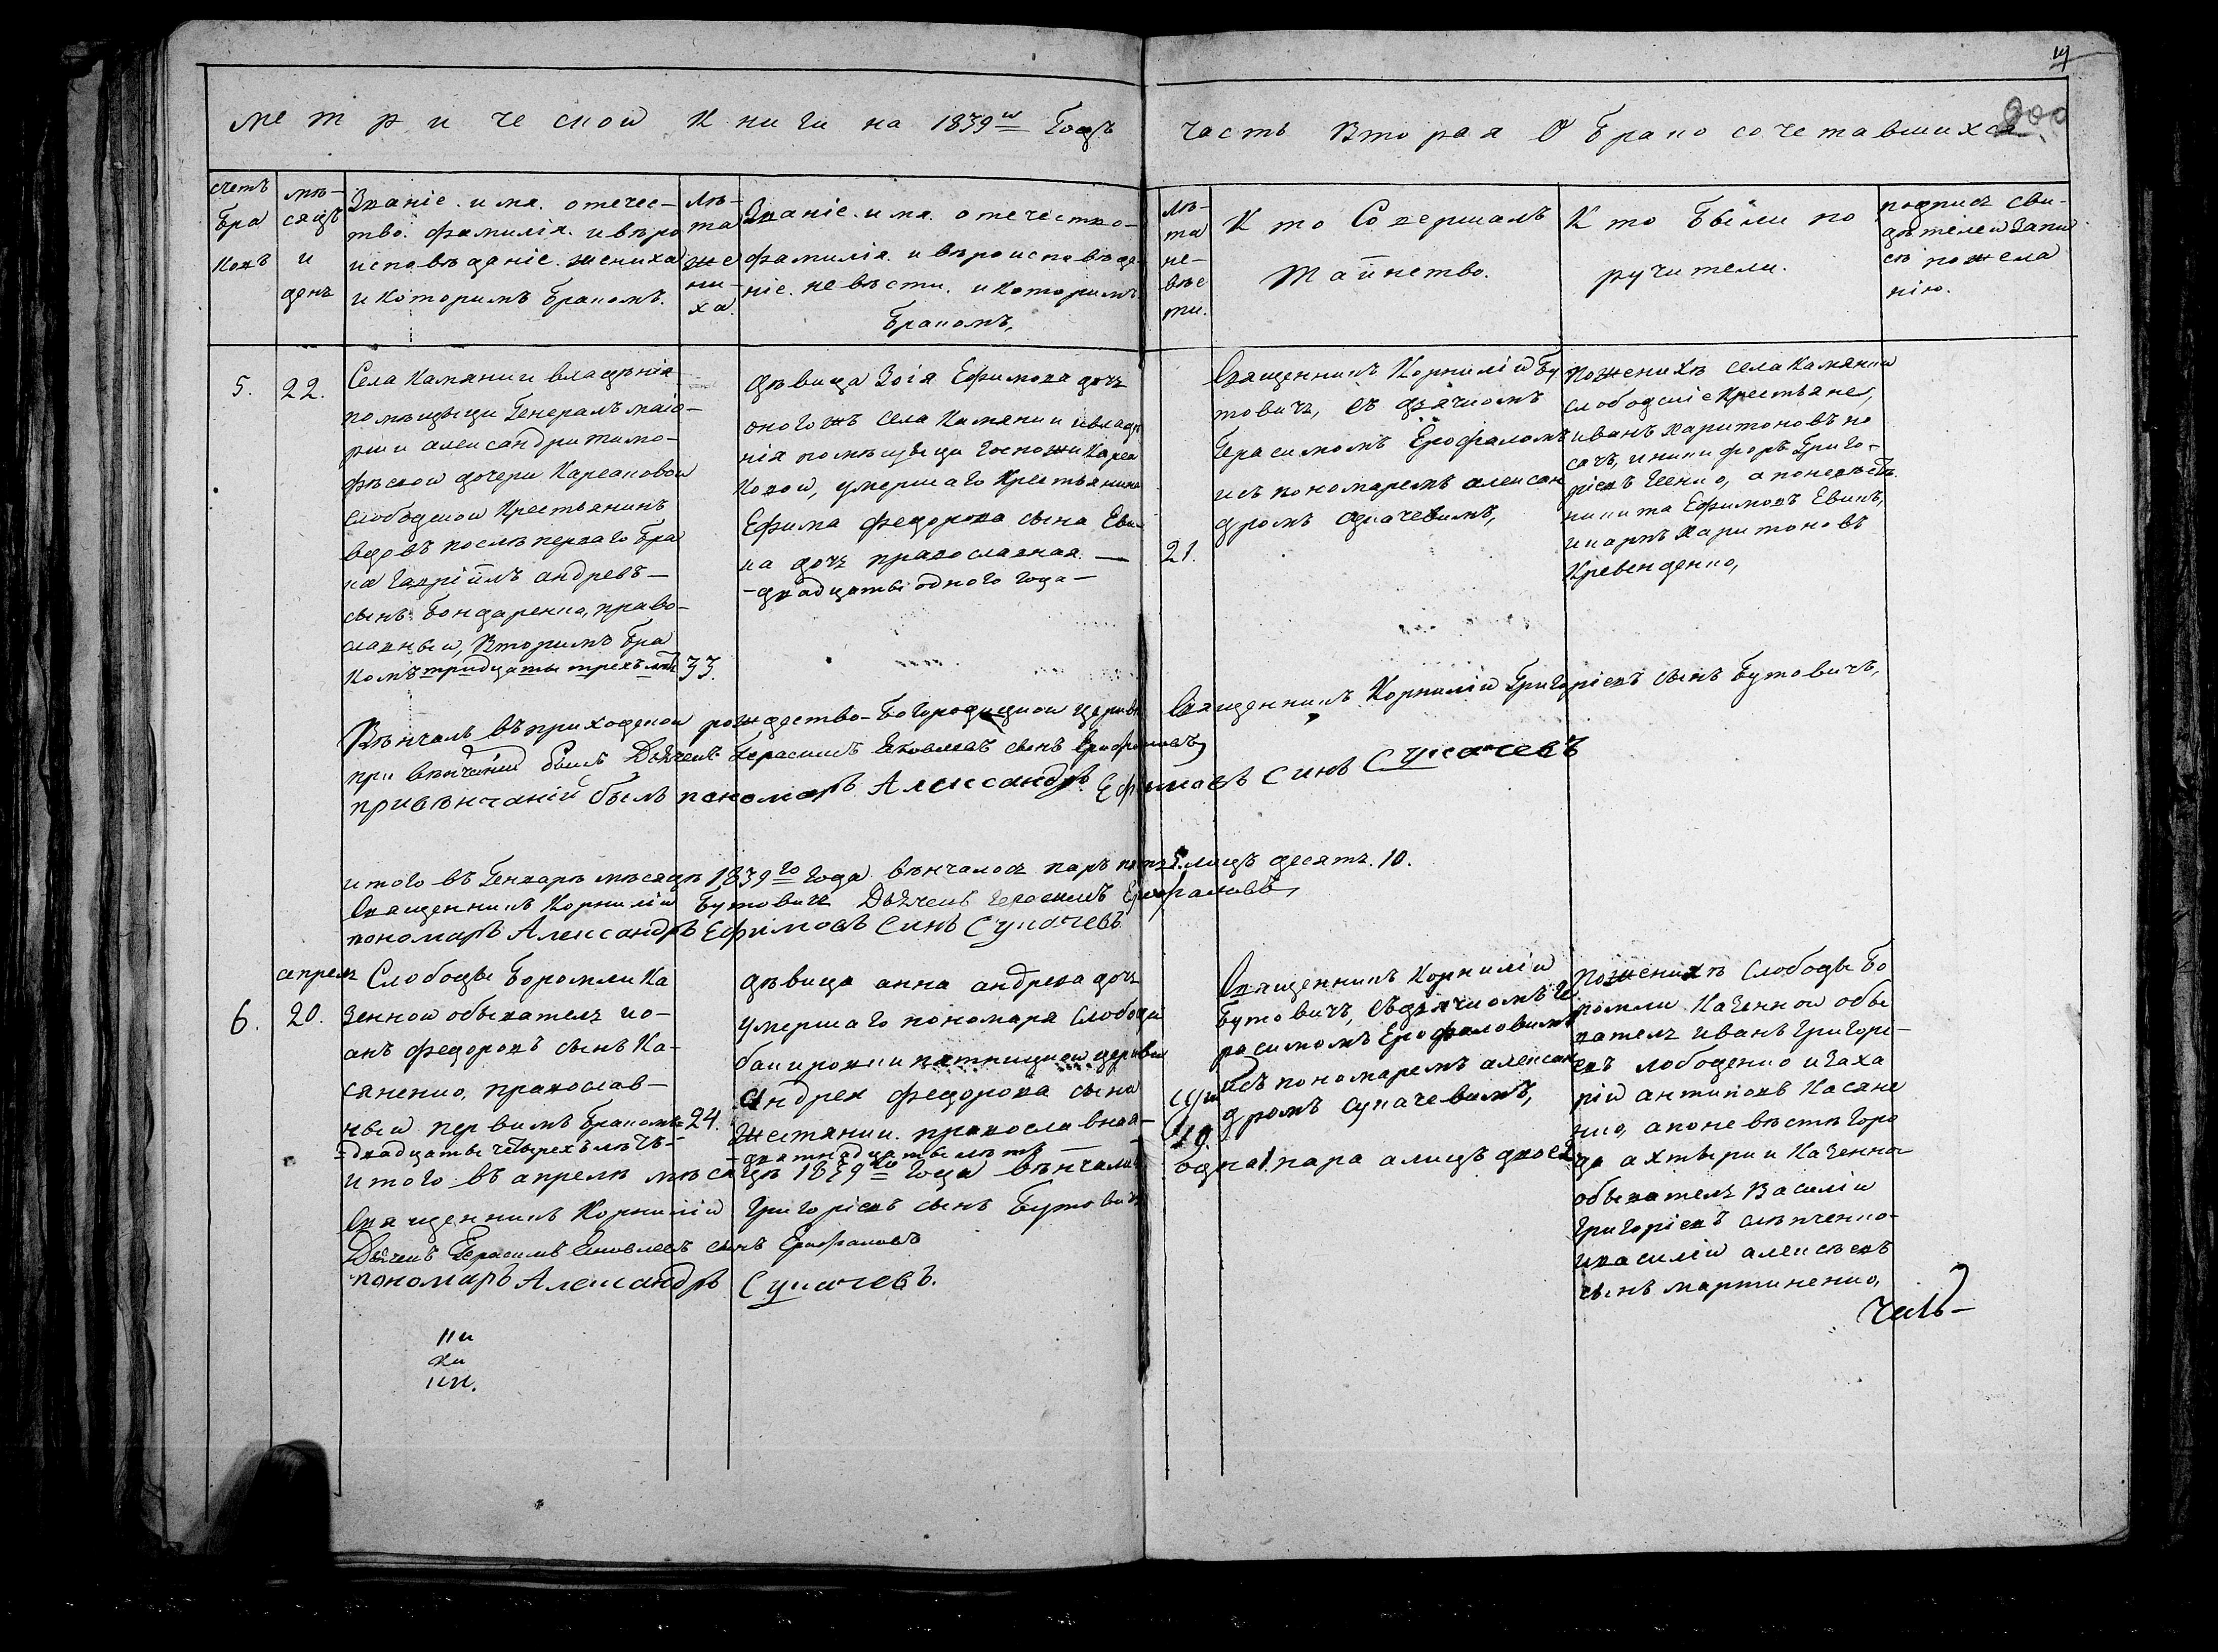 14
200
Метрической Книги на 1839й Годъ
часть Вторая О Бракосочетавшихся
счетъ
Бра
ковъ
мѣ-
сяцъ
и
день
Званіе. имя. отечес-
тво. фамилія. и вѣро
исповѣданіе. жениха
и которимъ Бракомъ.
Лѣ-
та
же
ни-
ха.
Званіе. имя. отечество-
фамилія. и вѣроисповѣда
ніе. невѣсти. и которимъ
Бракомъ,
Лѣ-
та
не-
вѣс
ти.
Кто Совершалъ
Таинство.
Кто Были по
ручители.
подпись сви-
дѣтелей запи
си по жела
нію.
5.
22.
Села Камянки владѣнія
помѣщици Генералъ маіо-
рши александри тимо-
фѣевой дочери Карсановой
слободской Крестьянинъ
вдовъ послѣ перваго Бра
ка Гавріилъ андревъ-
сынъ Бондаренко, право-
славный, Вторимъ Бра
комъ тридцаты трехъ лѣтъ
33.
дѣвица Зоія Ефимова дочь
оногожъ села Камянки и владѣ
нія помѣщици госпожи Карса
новой, умершаго Крестьянина
Ефима федорова сына Еви-
на дочь православная. —
-двадцаты одного года-
21.
Священникъ Корнилій Бу
товичъ, съ дячкомъ
Герасимомъ Ерофаломъ
исъ пономаремъ алексан
дромъ Сукачевимъ,
По женихѣ села Камянки
слободскіе Крестьяне,
иванъ харитоновъ но
сачъ, и никифоръ Григо-
ріевъ Ченко, а по невѣстѣ
никита Ефимовъ Евинъ,
и карпъ харитоновъ
Кревенденко,
Вѣнчалъ въ приходской рождество-Богородицкой церкви Священникъ Корнилій Григоріевъ сынъ Бутовичъ,
при венчаніи былъ Дьячекъ Герасимъ Яковлевъ сынъ Ерофаловъ,
при вѣнчаній былъ пономаръ Александръ Ефимовъ Синъ Сукачевъ
итого въ Генварѣ мѣсяцѣ 1839го года вѣнчалось паръ пять 5. лицъ десять. 10.
Священникъ Корнилій Бутовичъ Дьячекъ Герасимъ Ерофаловъ,
пономаръ Александръ Ефимовъ Синъ Сукачевъ
апрель
6.
20.
Слободы Боромли Ка
зенной обывателъ ио-
анъ федоровъ сынъ Ка-
сяненко, православ-
ный первимъ Бракомъ
-двадцаты четырехъ лѣтъ-
24.
дѣвица анна андрева дочь
умершаго пономаря Слободи
бакировки пятницкой церкви
Андрея федорова сына
Жестянки. православная-
-девятнадцаты лѣтъ-
19.
Священникъ Корнилій
Бутовичъ, съ дячкомъ Ге
расимомъ Ерофаловимъ
исъ пономаремъ алексан
дромъ Сукачевимъ,
По женихѣ Слободы Бо
ромли Казенной обы
ватель иванъ Григорі-
евъ лободенко и заха
рій антиповъ Касяне
нко, а по невѣстѣ горо
да ахтырки Казенна
обыватель Василій
Григоріевъ слѣпченко-
и василій алексѣевъ
сынъ мартиненко,
итого въ апрелѣ мѣсяцѣ 1839го года вѣнчалась одна 1. пара а лицъ двое 2.
Священникъ Корнилій Григоріевъ сынъ Бутовичъ
Дьячекъ Герасимъ Яковлевъ сынъ Ерофаловъ
пономаръ Александръ Сукачевъ.